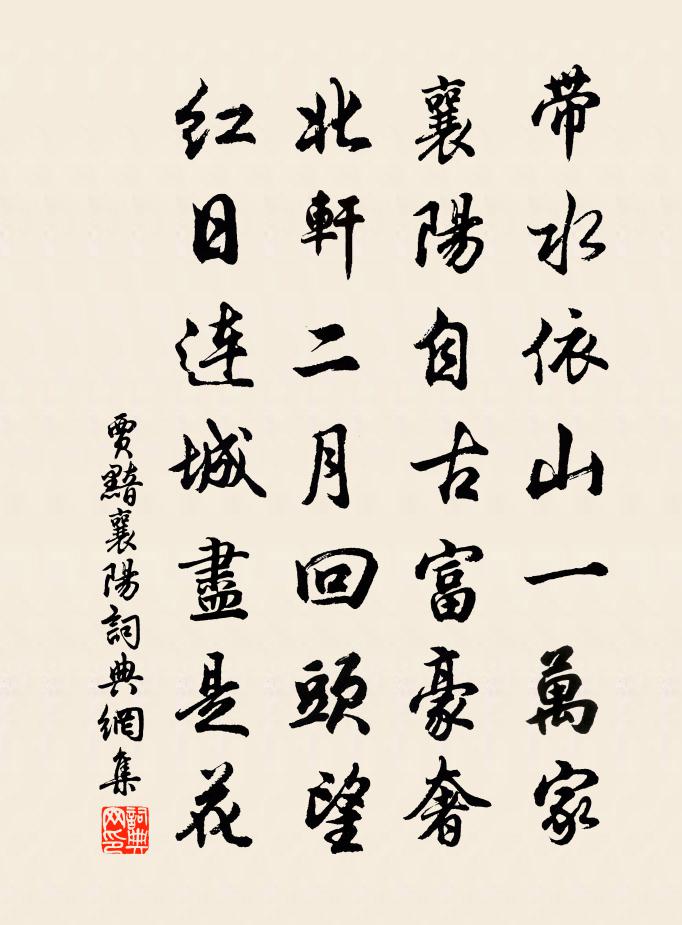 带水依山一萬家
襄陽自古富豪奢
北軒二月回頭望
红日连城盡是花
賈黯襄陽詞典網集
詞典网印